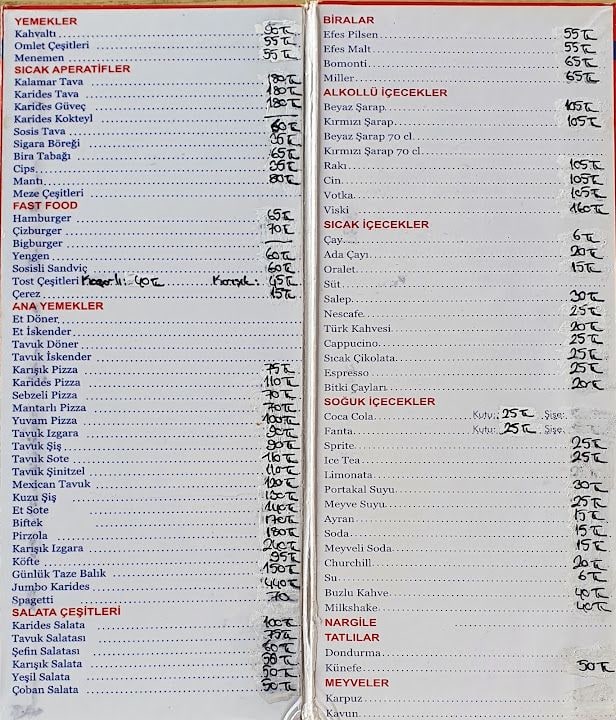 YEMEKLER
Kahvaltı
Omlet Çeşitleri 55 TL
Menemen 55 TL
SICAK APERATİFLER
Kalamar Tava 180 TL
Karides Tava 180 TL
Karides Güveç 180 TL
Karides Kokteyl
Sosis Tava 60 TL
Sigara Böreği
Bira Tabağı 65 TL
Cips
Mantı 80 TL
Meze Çeşitleri
FAST FOOD
Hamburger 65 TL
Çizburger 70 TL
Bigburger
Yengen 60 TL
Sosisli Sandviç 60 TL
Tost Çeşitleri Kaşarlı: 40 TL Karışık: 45 TL
Çerez 15 TL
ANA YEMEKLER
Et Döner
Et İskender
Tavuk Döner
Tavuk İskender
Karışık Pizza 75 TL
Karides Pizza 110 TL
Sebzeli Pizza 70 TL
Mantarlı Pizza 70 TL
Yuvam Pizza 100 TL
Tavuk Izgara 90 TL
Tavuk Şiş 90 TL
Tavuk Sote 110 TL
Tavuk Şinitzel 110 TL
Mexican Tavuk 120 TL
Kuzu Şiş
Et Sote 140 TL
Biftek 170 TL
Pirzola 180 TL
Karışık Izgara 240 TL
Köfte 95 TL
Günlük Taze Balık 150 TL
Jumbo Karides 440 TL
Spagetti 70
SALATA ÇEŞİTLERİ
Karides Salata 100 TL
Tavuk Salatası 75 TL
Şefin Salatası
Karışık Salata
Yeşil Salata
Çoban Salata 50 TL
BİRALAR
Efes Pilsen 55 TL
Efes Malt 55 TL
Bomonti 65 TL
Miller 65 TL
ALKOLLÜ İÇECEKLER
Beyaz Şarap 105 TL
Kırmızı Şarap 105 TL
Beyaz Şarap 70 cl.
Kırmızı Şarap 70 cl.
Rakı 105 TL
Cin 105 TL
Votka 105 TL
Viski 160 TL
SICAK İÇECEKLER
Çay 6 TL
Ada Çayı 20 TL
Oralet 15 TL
Süt
Salep 30 TL
Nescafe 25 TL
Türk Kahvesi 20 TL
Cappucino 25 TL
Sıcak Çikolata 25 TL
Espresso 25 TL
Bitki Çayları 20 TL
SOĞUK İÇECEKLER
Coca Cola Kutu: 25 TL Şişe:
Fanta Kutu: 25 TL Şişe:
Sprite 25 TL
Ice Tea 25 TL
Limonata
Portakal Suyu 30 TL
Meyve Suyu 25 TL
Ayran 15 TL
Soda 15 TL
Meyveli Soda 15 TL
Churchill 20 TL
Su 6 TL
Buzlu Kahve 40 TL
Milkshake 40 TL
NARGİLE
TATLILAR
Dondurma
Künefe 50 TL
MEYVELER
Karpuz
Kavun